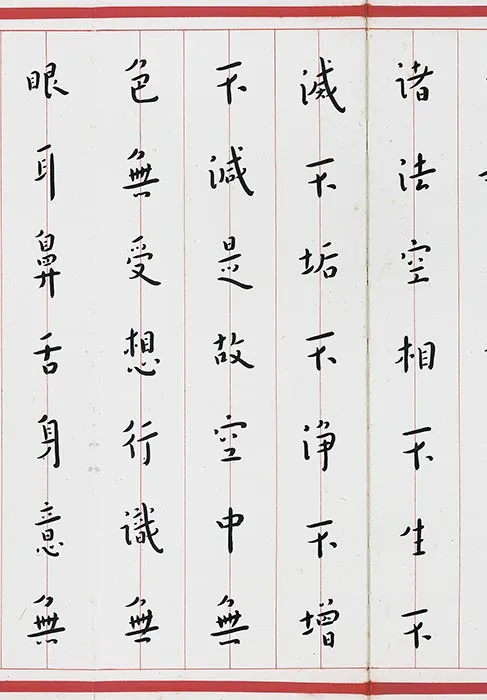 諸法空相不生不
滅不垢不淨不增
不減是故空中無
色無受想行識無
眼耳鼻舌身意無